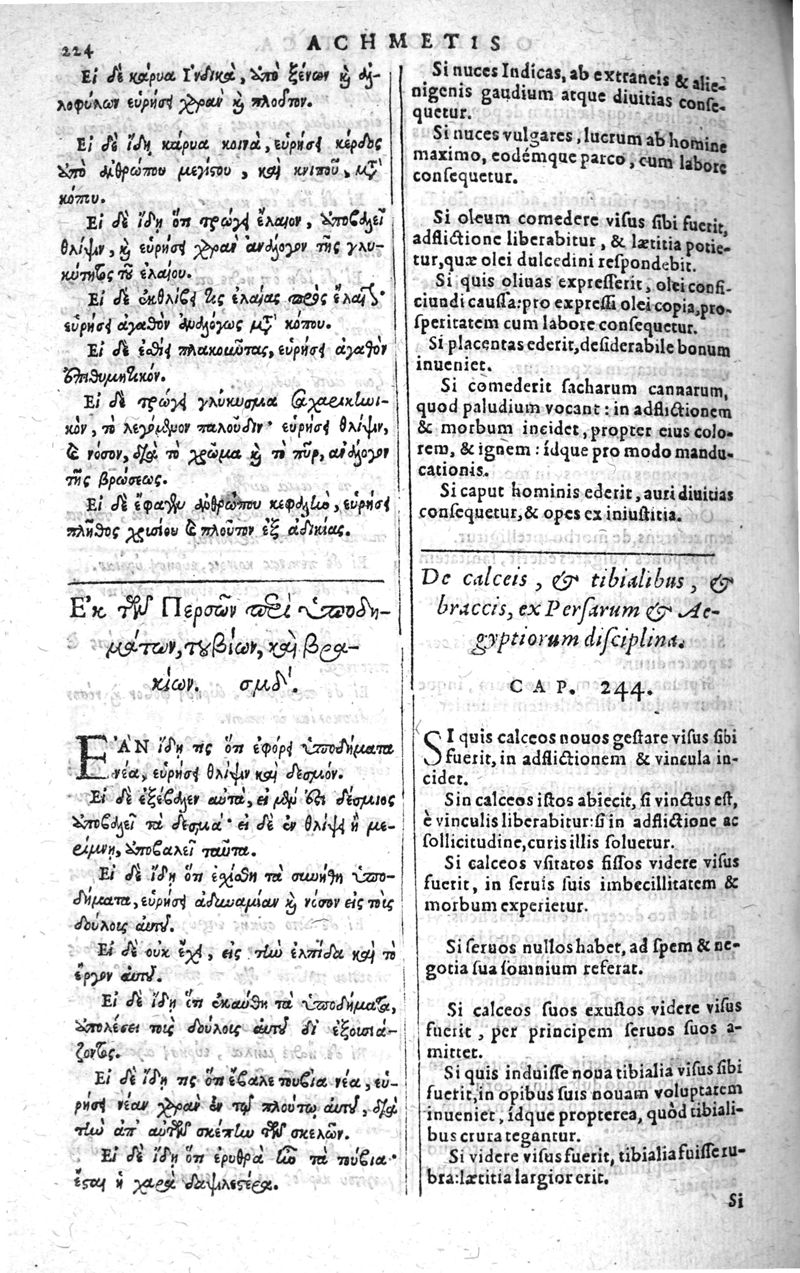 224
ACHMETIS
Εἰ δὲ κάρυα Ἰνδικὰ, ὑπὸ ξένων κỳ ἀλ-
λοφύλων εὑρήσῃ χαρὰν κỳ πλοῦτον.
Εἰ δὲ ἴδῃ κάρυα κοινὰ, εὑρήσῃ κέρδος
ὑπὸ ἀνθρώπου μεγίστου, καὶ κνιποῦ, μετὰ
κόπου.
Εἰ δὲ ἴδῃ ὅτι τρώγῃ ἔλαιον, ὑποβαλεῖ
θλίψιν, κỳ εὑρήσῃ χαρὰν ἀνάλογον τῆς γλυ-
κύτητος τοῦ ἐλαίου.
Εἰ δὲ ἐκθλίβῃ τὶς ἐλαίας πρὸς ἔλαιον·
εὑρήσῃ ἀγαθὸν ἀναλόγως μετὰ κόπου.
Εἰ δὲ ἐσθίῃ πλακοωῦτας, εὑρήσῃ ἀγαθὸν
ἐπιθυμητικόν.
Εἰ δὲ τρώγῃ γλύκυσμα σαχαρικωνι-
κὸν, τὸ λεγόμενον παλούδιν· εὑρήσῃ θλίψιν,
καὶ νόσον, διὰ τὸ χρῶμα κỳ τὸ πῦρ, ἀνάλογον
τῆς βρώσεως.
Εἰ δὲ ἔφαγεν ἀνθρώπου κεφαλὴν, εὑρήσῃ
πλῆθος χρισίου καὶ πλοῦτον ἐξ ἀδικίας.
Ἐκ τῶν Περσῶν περὶ ὑποδη-
μάτων, τουβίων, καὶ βρα-
κίων. σμδʹ.
ΕΑΝ ἴδῃ τις ὅτι ἐφόρει ὑποδήματα
νέα, εὑρήσῃ θλίψιν καὶ δεσμόν.
Εἰ δὲ ἐξέβαλεν αὐτὰ, εἰ μὲν ἔστι δέσμιος
ὑποβαλεῖ τὰ δεσμά· εἰ δὲ ἐν θλίψει ἢ με-
ρίμνῃ, ὑποβαλεῖ ταῦτα.
Εἰ δὲ ἴδῃ ὅτι ἐχίσθη τὰ συνήθη ὑπο-
δήματα, εὑρήσῃ ἀδυναμίαν κỳ νόσον εἰς τοὺς
δούλους αὐτοῦ.
Εἰ δὲ οὐκ ἔχει, εἰς τὴν ἐλπίδα καὶ τὸ
ἔργον αὐτοῦ.
Εἰ δὲ ἴδῃ ὅτι ἐκαύθη τὰ ὑποδήματα,
ὑπολέσει τοὺς δούλους αὐτοῦ δι' ἐξουσιά-
ζοντος.
Εἰ δὲ ἴδῃ τις ὅτι ἔβαλε τουβία νέα, εὑ-
ρήσῃ νέαν χαρὰν ἐν τῷ πλούτῳ αὐτοῦ, διὰ
τὴν ἀπ' αὐτῶν σκέπην τῶν σκελῶν.
Εἰ δὲ ἴδῃ ὅτι ἐρυθρὰ ἦν τὰ τουβία·
ἔσται ἡ χαρὰ δαψιλεστέρα.
Si nuces Indicas, ab extraneis & alie-
nigenis gaudium atque diuitias conse-
quetur.
Si nuces vulgares, lucrum ab homine
maximo, eodémque parco, cum labore
consequetur.
Si oleum comedere visus sibi fuerit,
adflictione liberabitur, & lætitia potie-
tur, quæ olei dulcedini respondebit.
Si quis oliuas expresserit, olei confi-
ciundi caussa: pro expressi olei copia, pro-
speritatem cum labore consequetur.
Si placentas ederit, desiderabile bonum
inueniet.
Si comederit sacharum cannarum,
quod paludium vocant: in adflictionem
& morbum incidet, propter eius colo-
rem, & ignem: ídque pro modo mandu-
cationis.
Si caput hominis ederit, auri diuitias
consequetur, & opes ex iniustitia.
De calceis, & tibialibus, &
braccis, ex Persarum & Ae-
gyptiorum disciplina.
CAP. 244.
SI quis calceos nouos gestare visus sibi
fuerit, in adflictionem & vincula in-
cidet.
Sin calceos istos abiecit, si vinctus est,
è vinculis liberabitur: si in adflictione ac
sollicitudine, curis illis soluetur.
Si calceos vsitatos fissos videre visus
fuerit, in seruis suis imbecillitatem &
morbum experietur.
Si seruos nullos habet, ad spem & ne-
gotia sua somnium referat.
Si calceos suos exustos videre visus
fuerit, per principem seruos suos a-
mittet.
Si quis induisse noua tibialia visus sibi
fuerit, in opibus suis nouam voluptatem
inueniet, ídque propterea, quòd tibiali-
bus crura tegantur.
Si videre visus fuerit, tibialia fuisse ru-
bra: lætitia largior erit.
Si